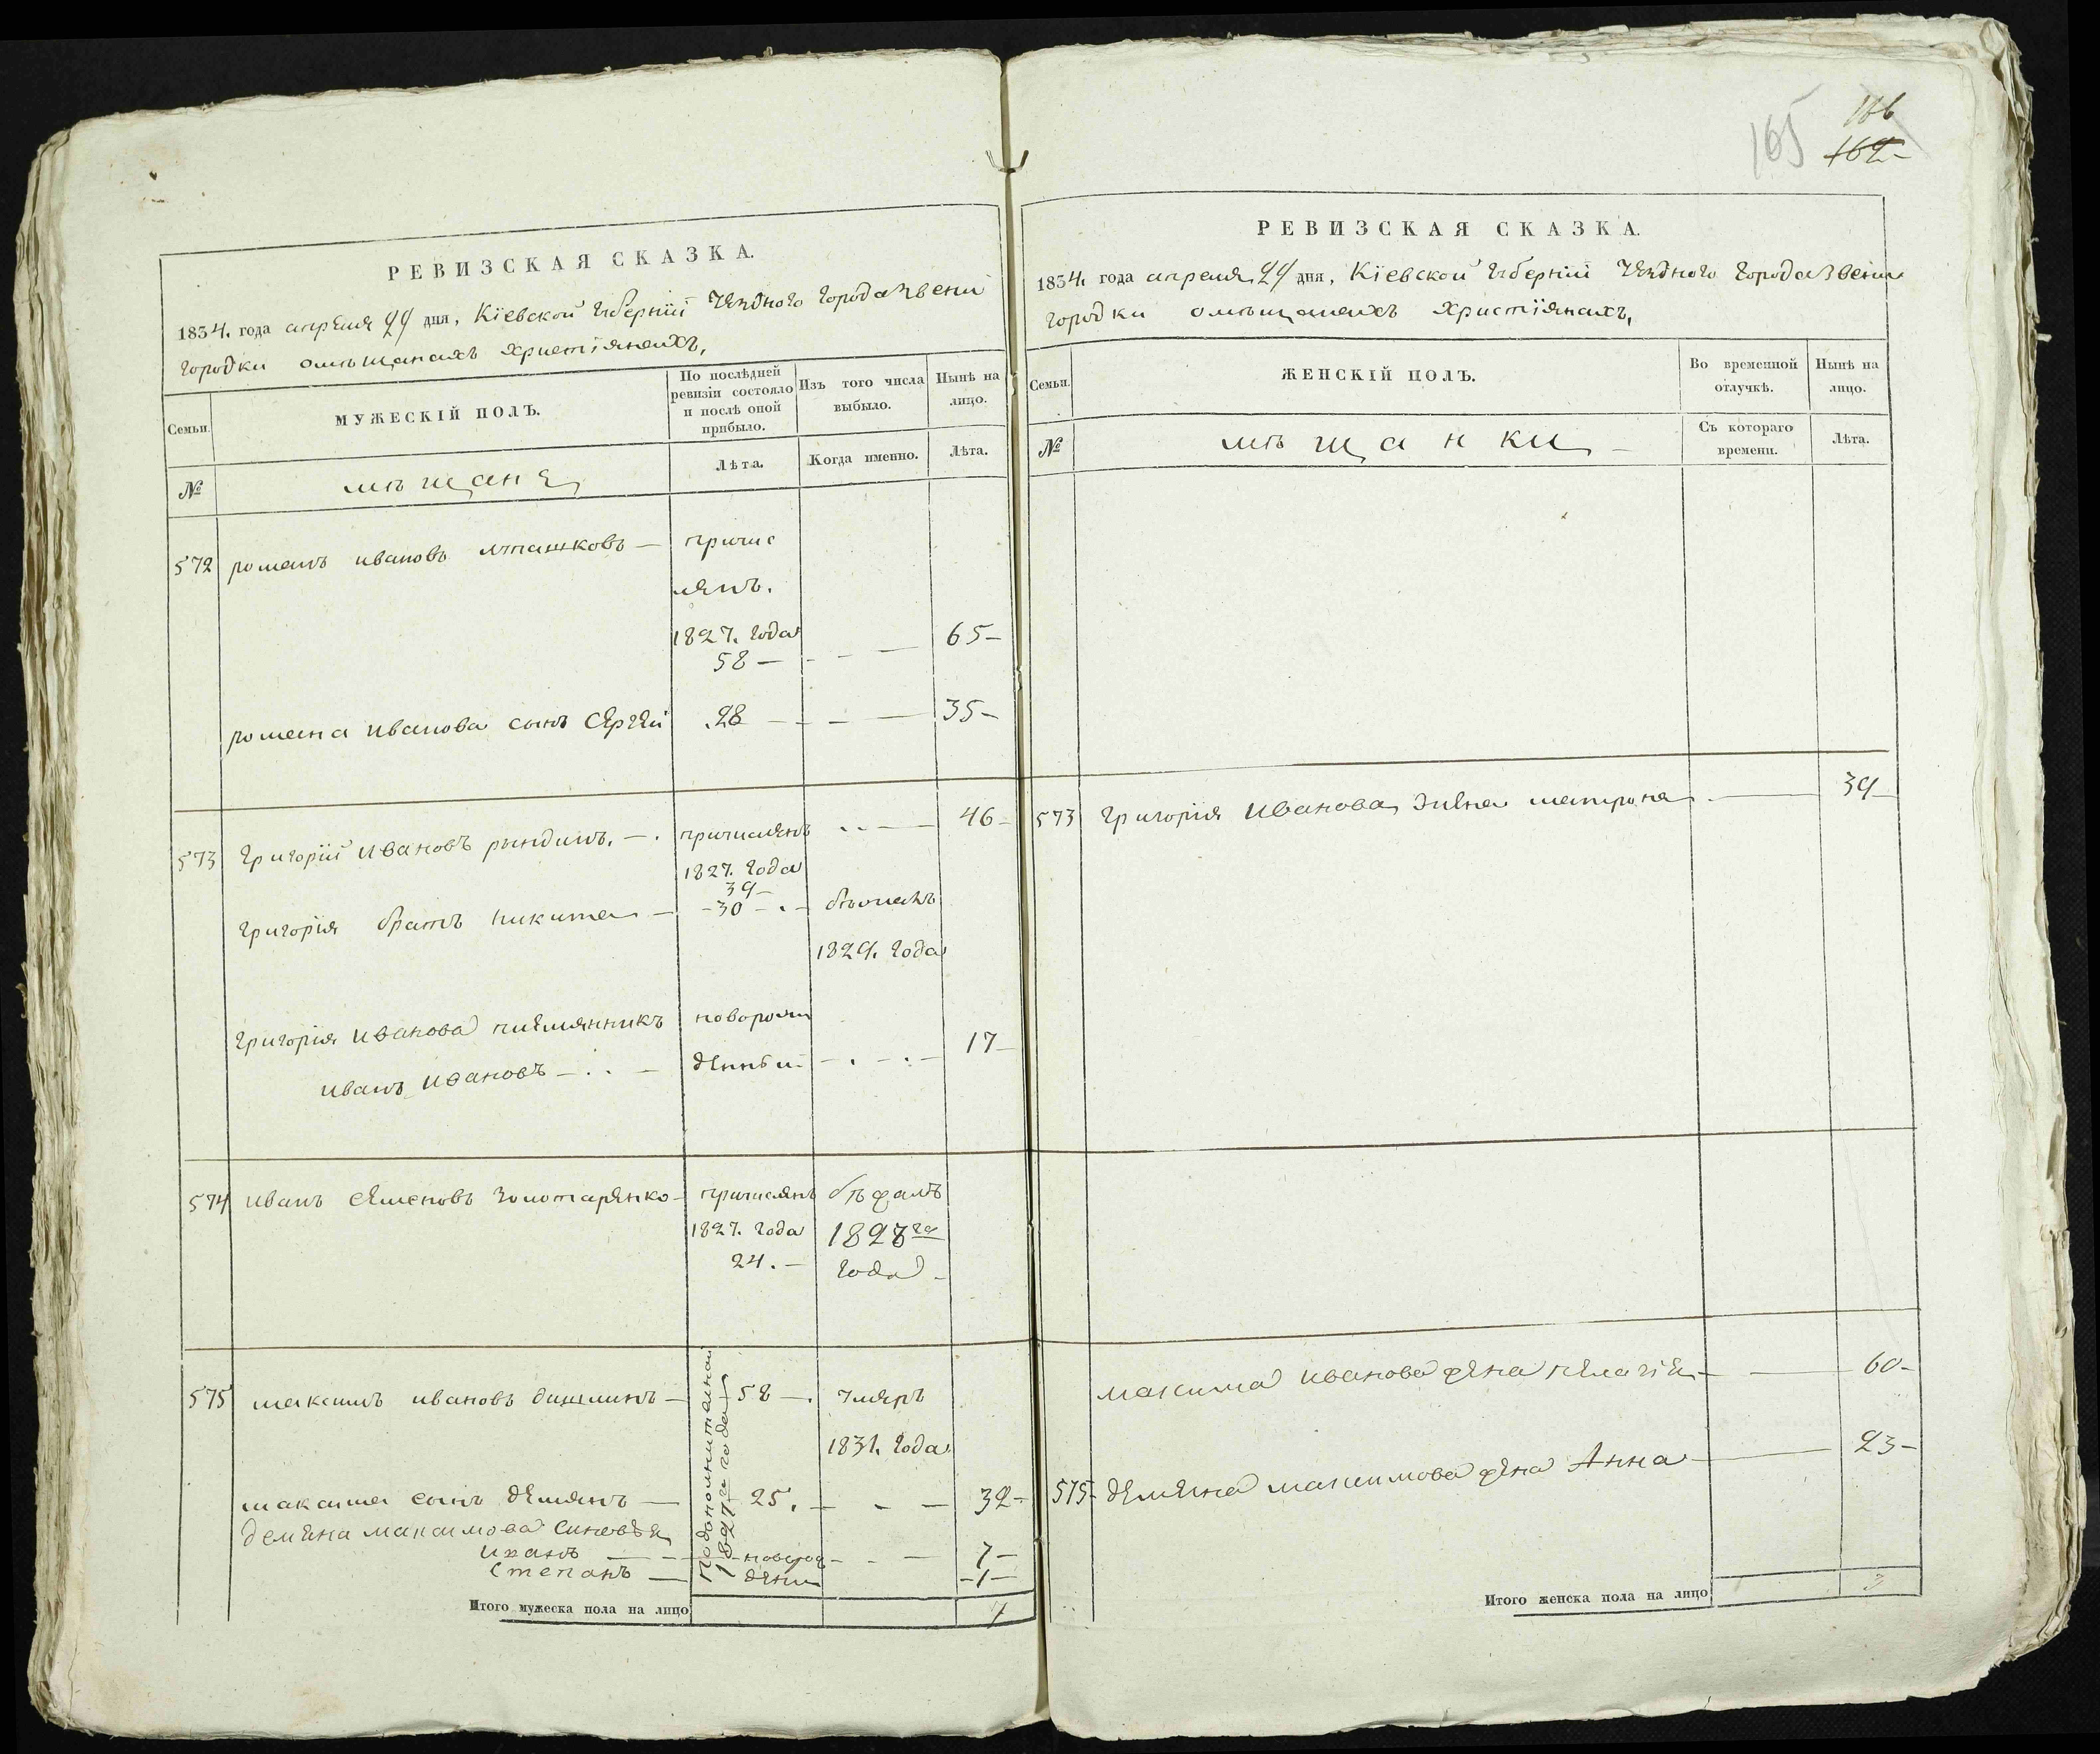 РЕВИЗСКАЯ СКАЗКА.
1834. года апреля 24 дня, Кіевской Губерніи Уезднаго Города Звени
городки о мѣщанахъ Христіянахъ,
Семьи.
МУЖЕСКІЙ ПОЛЪ.
По послѣдней ревизіи состояло и послѣ оной прибыло.
Изъ того числа выбыло.
Нынѣ на лицо.
№
мѣщане
Лѣта.
Когда именно.
Лѣта.
572 романъ ивановъ — причис
ленъ.
1827. Года
58 — — — 65 —
романа иванова сынъ Сергей 28 — — — 35 —
573 Григорій Ивановъ рындинъ. — причисленъ — 46 —
1827. Года
39 —
Григорія братъ никита — 30 — бѣжалъ
1829. Года
Григорія Иванова племянникъ новорож
иванъ ивановъ — денный — 17 —
574 иванъ семеновъ золотаренко — причисленъ бѣжалъ
1827. Года 1828го
24. — Года —
575 максимъ ивановъ — 58 — умеръ
1831. Года
по дополнительной
1827го года
максима сынъ демянъ — 25. — — 32 —
демяна максимова синовья
иванъ — новорож — — 7 —
Степанъ — дени — 1 —
Итого мужеска пола на лицо 7
165
166
162 —
РЕВИЗСКАЯ СКАЗКА.
1834. года апреля 24 дня, Кіевской Губерніи Уезднаго Города Звени
городки о мѣщанахъ Христіянахъ,
Семьи.
ЖЕНСКІЙ ПОЛЪ.
Во временной отлучкѣ.
Нынѣ на лицо.
№
мѣщанки —
Съ котораго времени.
Лѣта.
573 Григорія Иванова жена матрона — 39 —
максима Иванова жена пелагія — 60 —
575 — демяна максимова жена Анна — 23 —
Итого женска пола на лицо 3